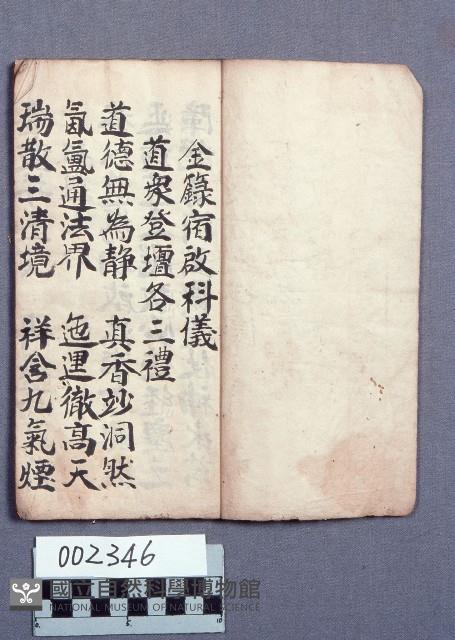 金籙宿啟科儀
道衆登壇各三禮
道德無為静 真香妙洞然
氤氳通法界 迤逦徹髙天
瑞散三清境 祥含九氣煙
002346
國立自然科學博物館
NATIONAL MUSEUM OF NATURAL SCIENCE